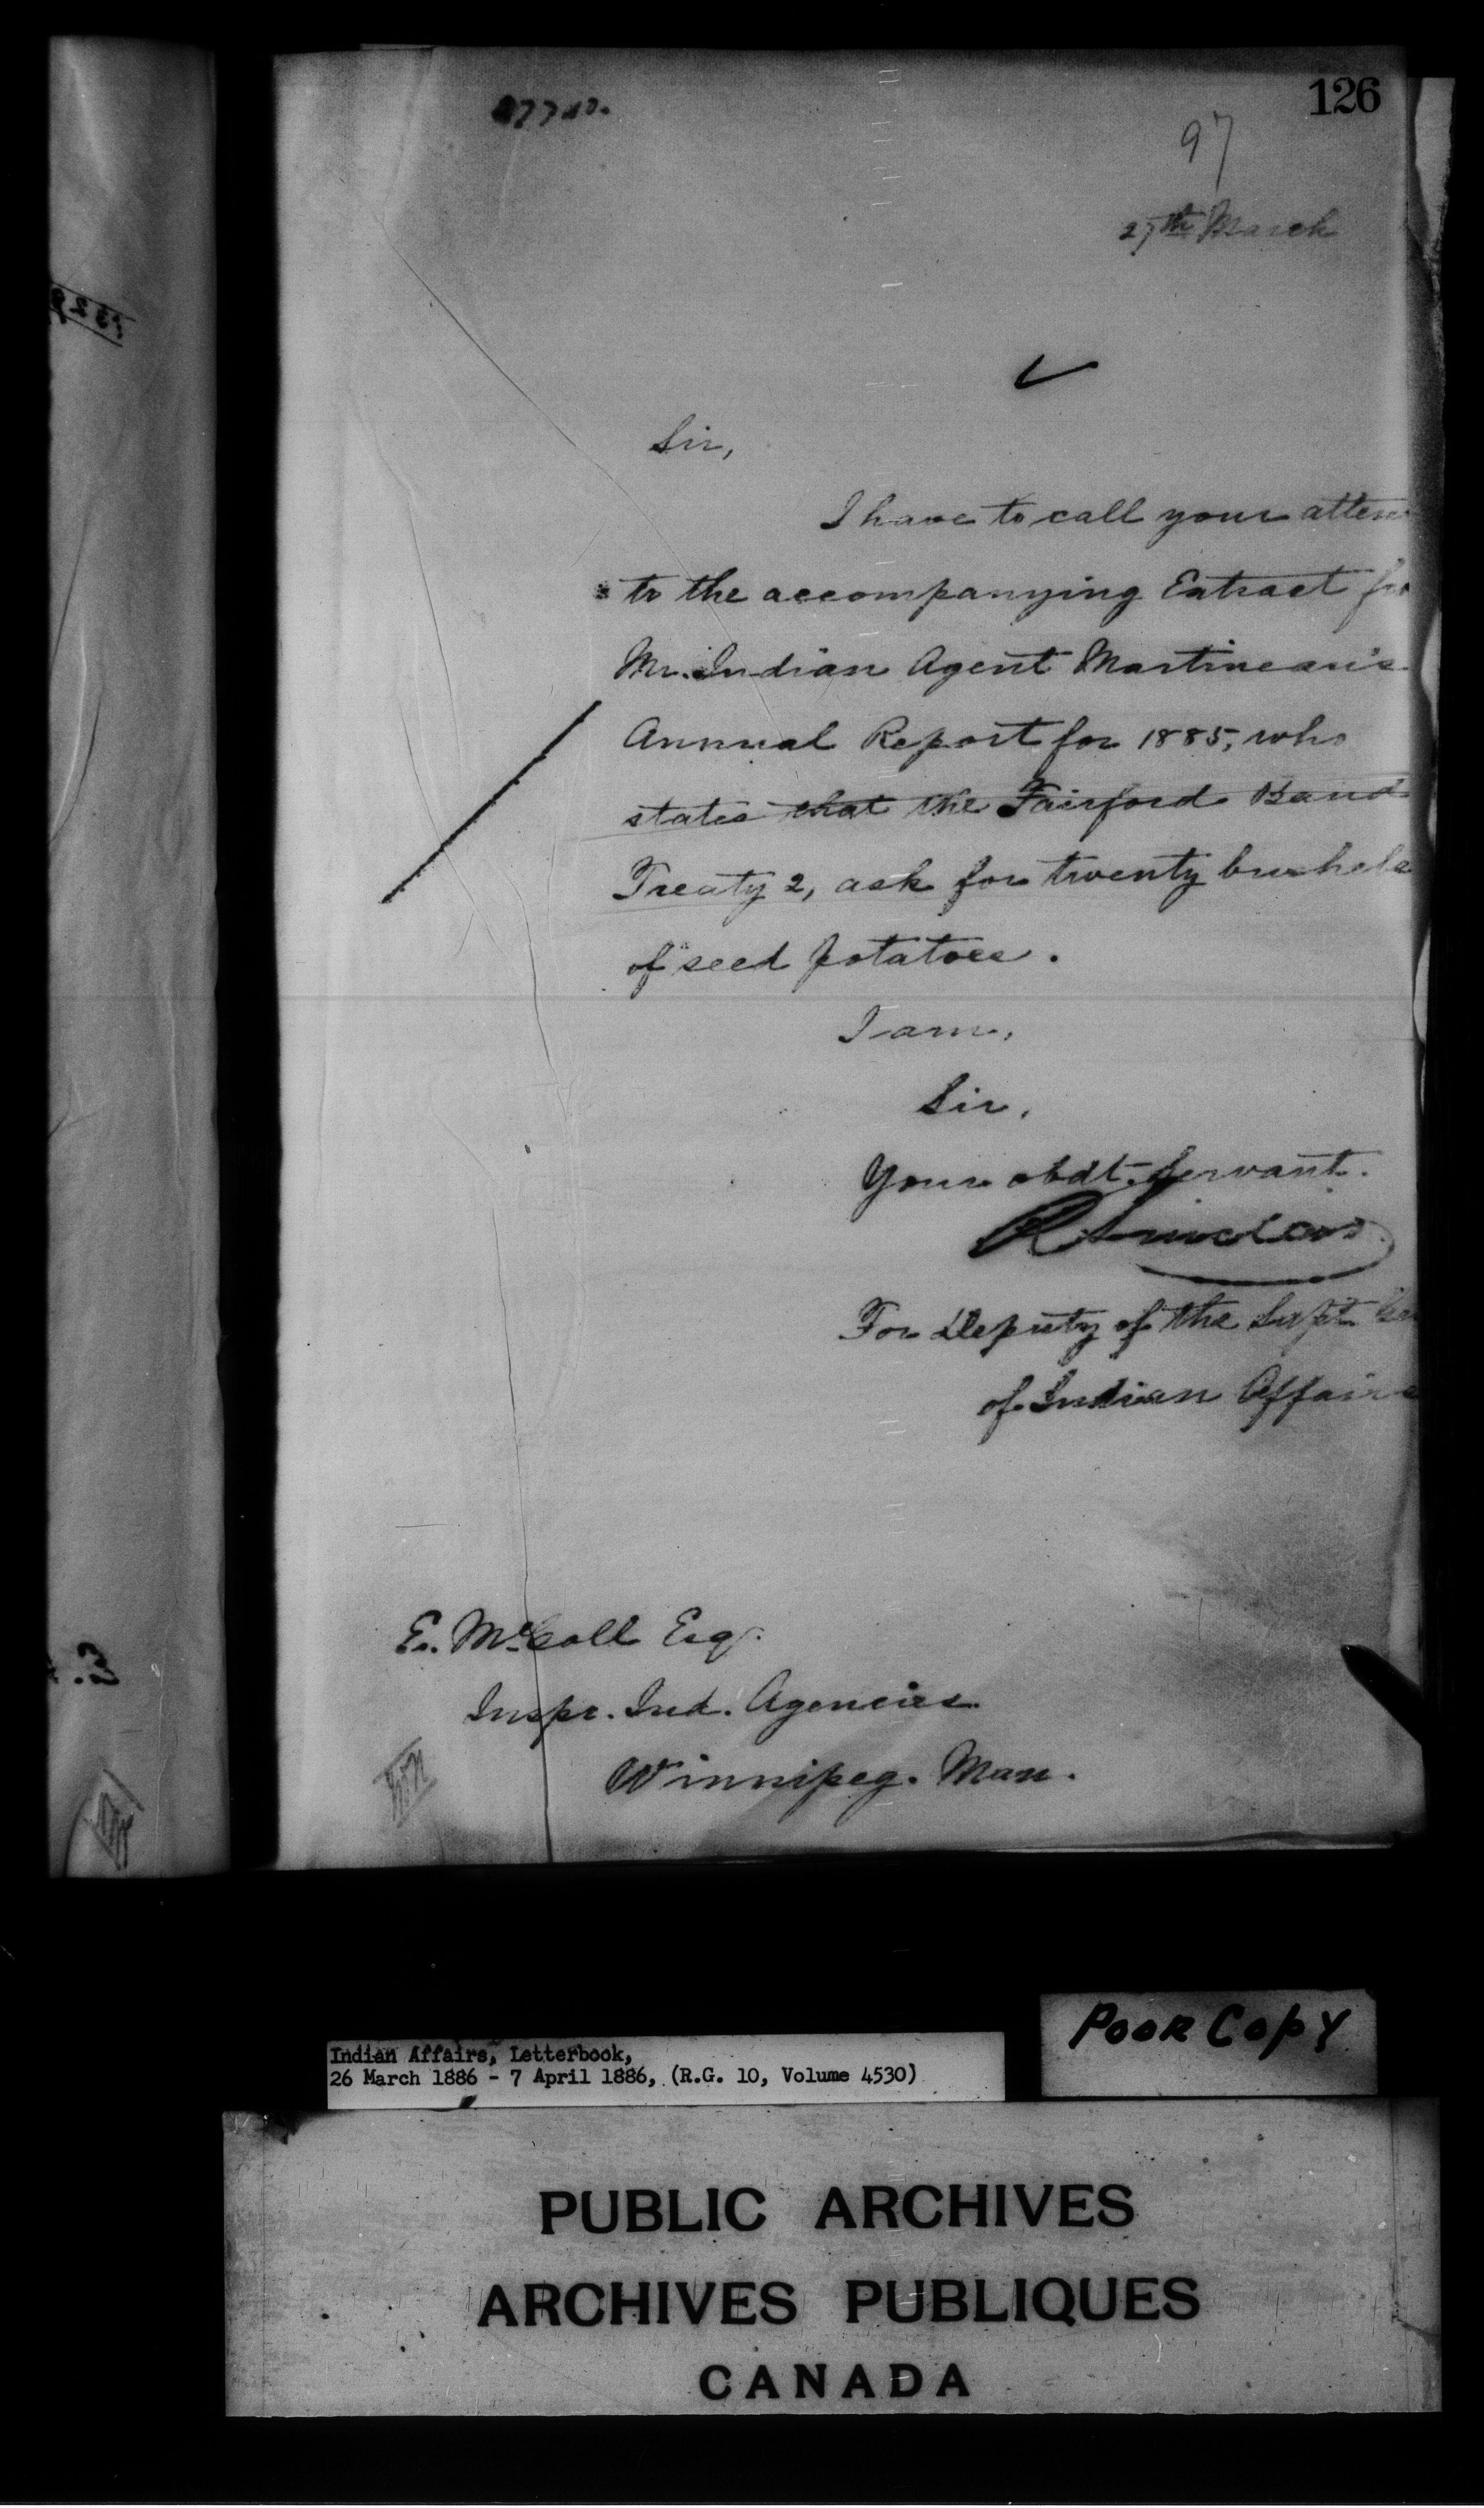 126
97
27th March
Sir,
I have to call your atten
to the accompanying Extract fr
Mr. Indian Agent Martineau's
Annual Report for 1885, who
states that the Fairford Band
Treaty 2, ask for twenty bushels
of seed potatoes.
I am,
Sir,
Your obdt. Servant.
R Sinclair
For Deputy of the Supt. Gen
of Indian Affairs
E. McColl Esq.
Inspr. Ind. Agencies
Winnipeg. Man.
Poor Copy
Indian Affairs, Letterbook,
26 March 1886 - 7 April 1886, (R.G. 10, Volume 4530)
PUBLIC ARCHIVES
ARCHIVES PUBLIQUES
CANADA